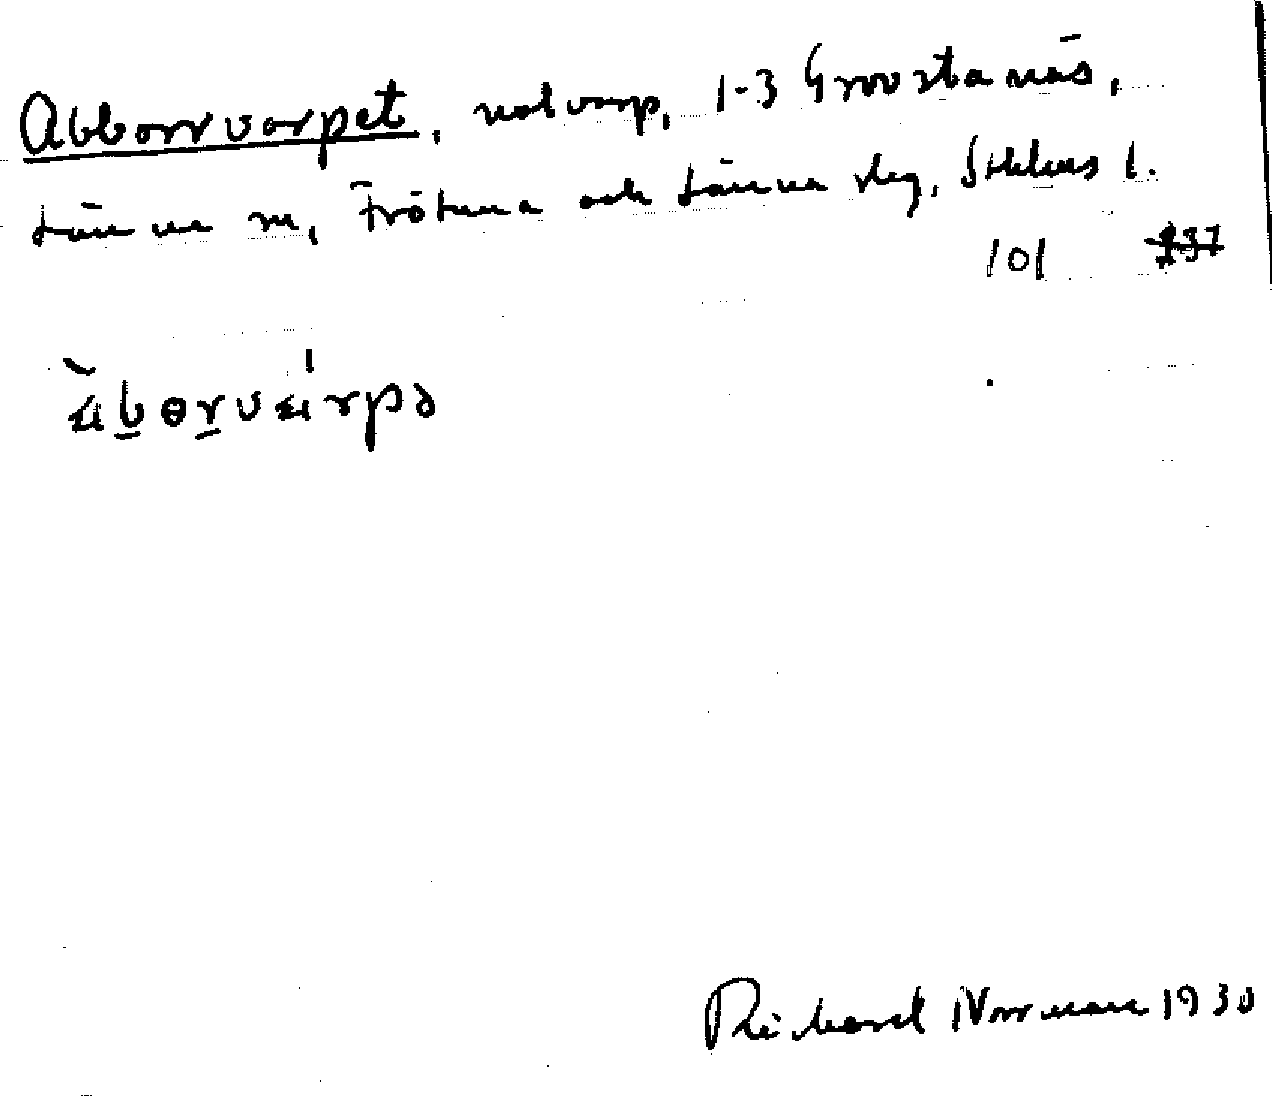 Abborrvarpet, notvarp, 1-3 Grovstanäs,
Länna sn, Frötuna och Länna slg, Sthlms l.
101 237
Richard Norrman 1930